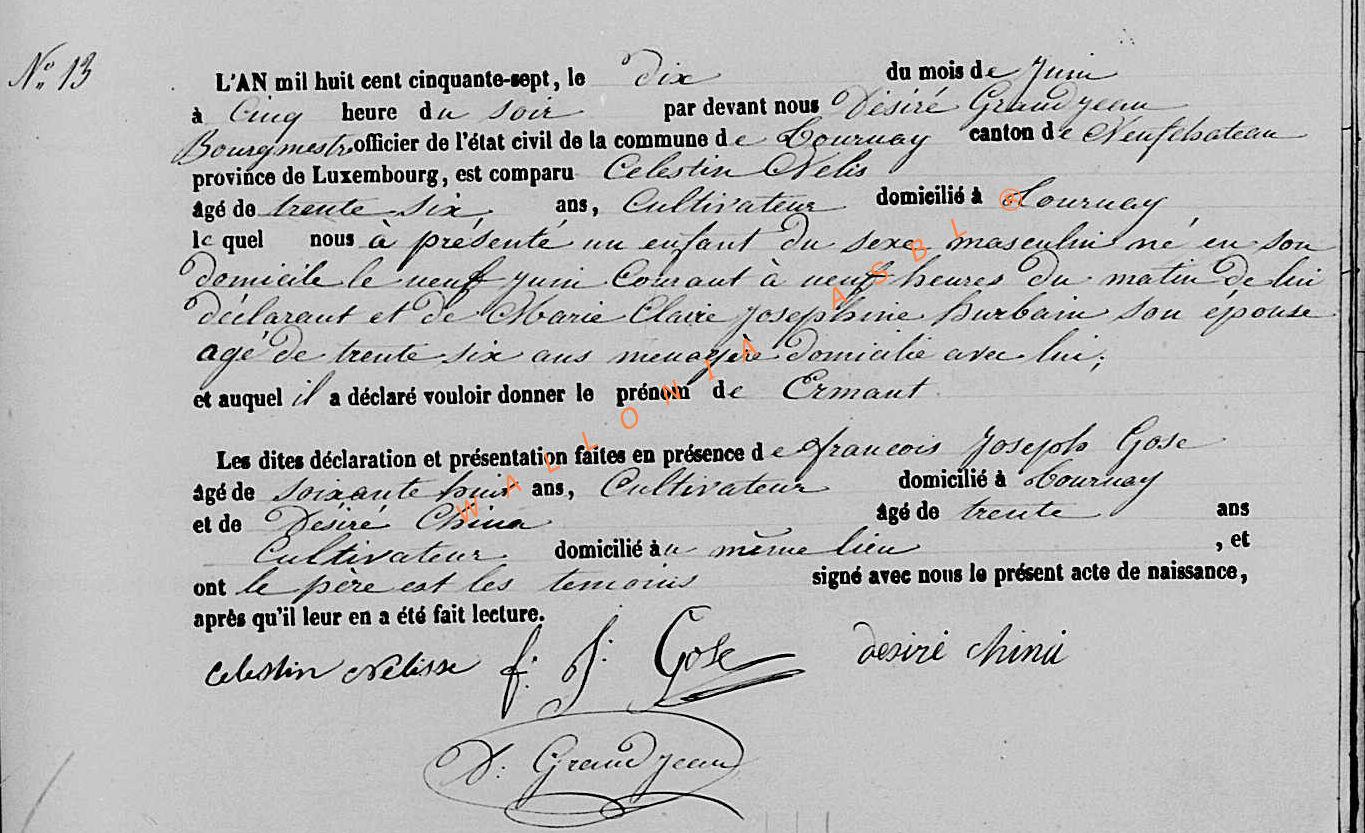 N° 13
L'AN mil huit cent cinquante-sept, le dix du mois de Juin
à Cinq heure du soir par devant nous Désiré Grandjean
Bourgmestre officier de l'état civil de la commune de Tournay canton de Neufchateau
province de Luxembourg, est comparu Celestin Nelis
âgé de trente six, ans, Cultivateur domicilié à Tournay
le quel nous à présenté un enfant du sexe masculin né en son
domicile le neuf juin Courant à neuf heures du matin de lui
déclarant et de Marie Claire Josephine hurbain son épouse
agé de trente six ans menagère domicilié avec lui;
et auquel il a déclaré vouloir donner le prénom de Ermant
Les dites déclaration et présentation faites en présence de francois Joseph Gose
âgé de soixante huit ans, Cultivateur domicilié à Tournay
et de Désiré China âgé de trente ans
Cultivateur domicilié au même lieu , et
ont le père est les temoins signé avec nous le présent acte de naissance,
après qu'il leur en a été fait lecture.
celestin Nelisse f: J: Gose desiré chinà
D: Grandjean
WALLONIA ASBL ®